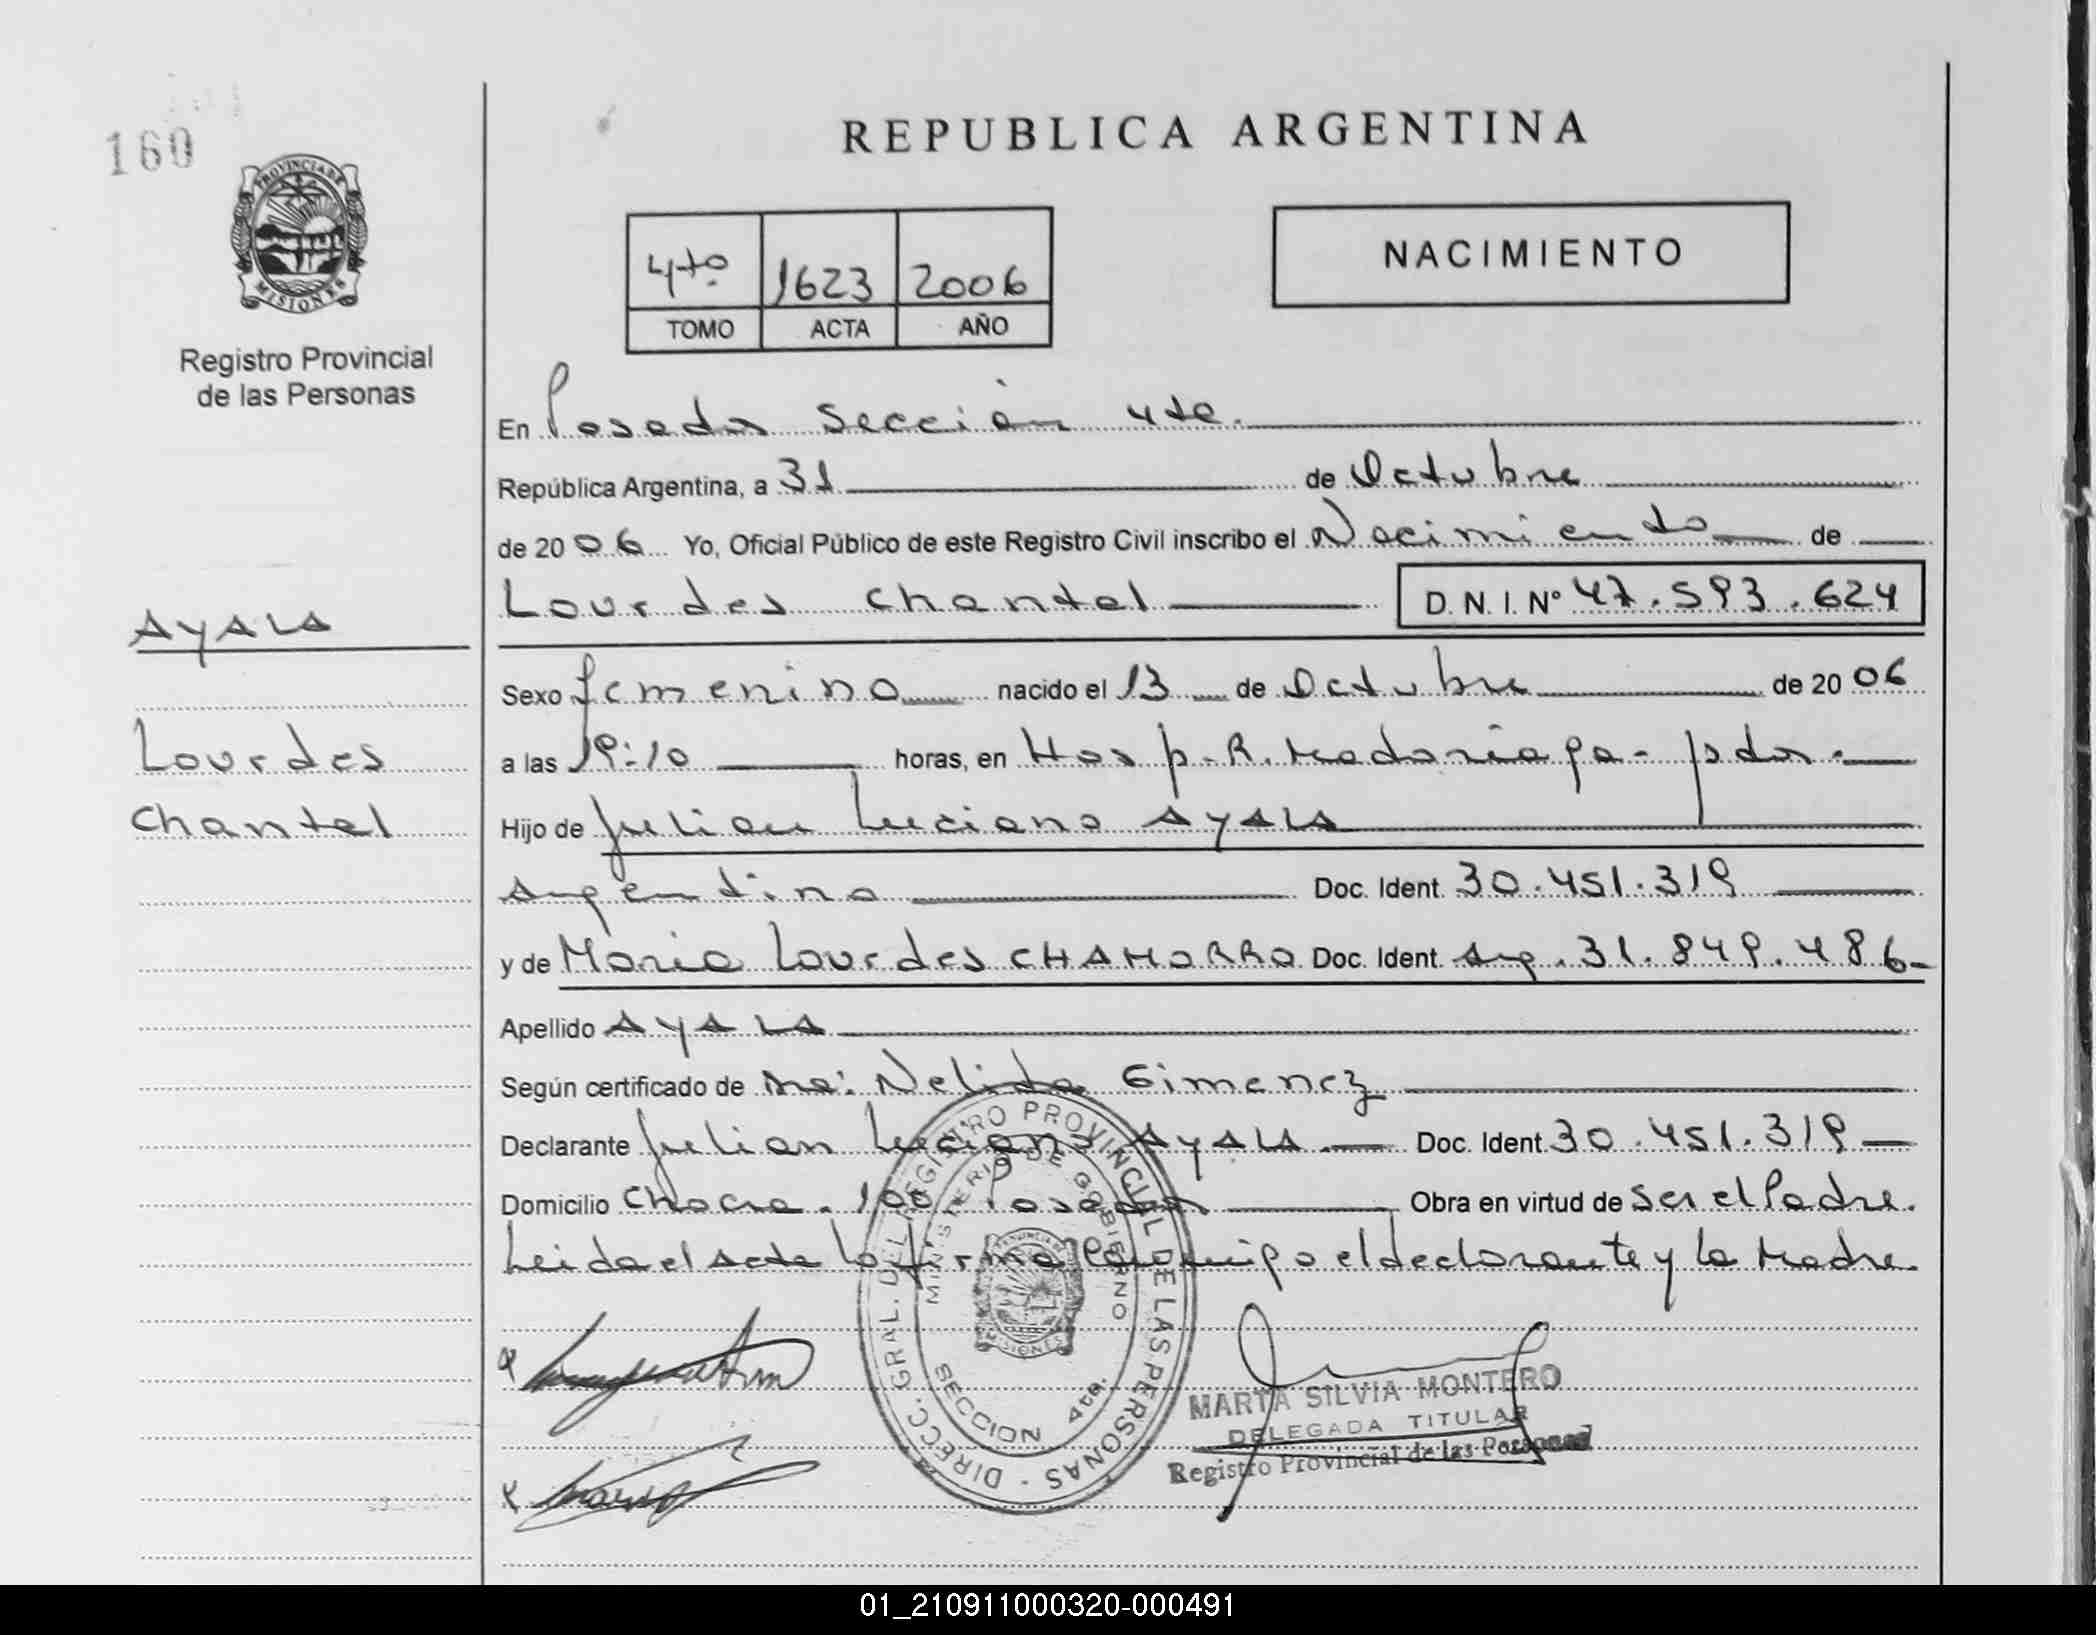 160
PROVINCIA DE
MISIONES
Registro Provincial
de las Personas
REPUBLICA ARGENTINA
4to. 1623 2006
TOMO ACTA AÑO
NACIMIENTO
En Posadas Sección 4ta.
República Argentina, a 31 de Octubre
de 2006 Yo, Oficial Público de este Registro Civil inscribo el Nacimiento de
Lourdes Chantal D.N.I. Nº 47.593.624
AYALA
Lourdes
Chantal
Sexo femenino nacido el 13 de Octubre de 2006
a las 19:10 horas, en Hosp. R. Madariaga - Pdas.
Hijo de Julian Luciano AYALA
Argentino Doc. Ident. 30.451.319
y de Maria Lourdes CHAMORRO Doc. Ident. Arg. 31.849.486-
Apellido AYALA
Según certificado de Nelida Gimenez
Declarante Julian Luciano AYALA Doc. Ident 30.451.319
Domicilio Chacra. 100 Posadas Obra en virtud de ser el Padre.
Leida el Acta la firma conmigo el declarante y la Madre.
DIRECC. GRAL. DEL REGISTRO PROVINCIAL DE LAS PERSONAS -
MINISTERIO DE GOBIERNO
SECCION 4ta.
MARTA SILVIA MONTERO
DELEGADA TITULAR
Registro Provincial de las Personas
01_210911000320-000491